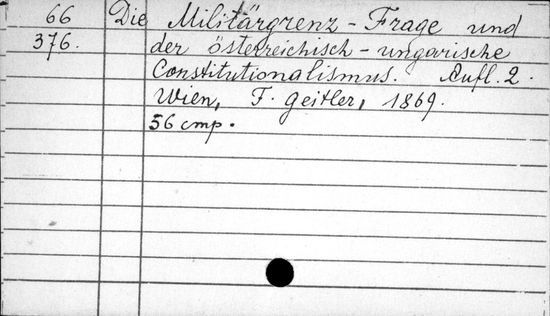 66 Die Militärgrenz-Frage und
376. der österreichisch-ungarische
Constitutionalismus. Aufl. 2.
Wien, F. Geitler, 1869.
56 стр.